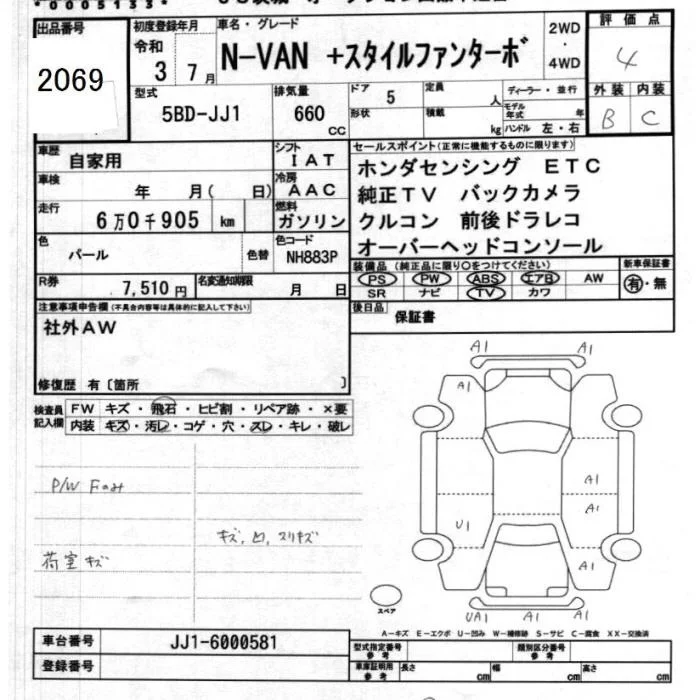 *0005133*
出品番号
2069
初度登録年月
令和
3 7月
車名・グレード
N-VAN +スタイルファンターボ
2WD
・
4WD
評価点
4
外装 内装
B C
型式
5BD-JJ1
排気量
660
cc
ドア 5
形状
定員 人
積載 kg
ディーラー・並行
モデル年式 年
ハンドル 左・右
車歴
自家用
シフト
IAT
車検
年 月( 日)
冷房
AAC
走行
6万0千905 km
燃料
ガソリン
色
パール
色替
色コード
NH883P
R券
7,510円
名変通知期限
月 日
セールスポイント(正常に機能するものに限ります)
ホンダセンシング ETC
純正TV バックカメラ
クルコン 前後ドラレコ
オーバーヘッドコンソール
装備品(純正品に限り○をつけてください)
PS PW ABS エアB AW
SR ナビ TV カワ
新車保証書
有・無
後日品
保証書
注意事項申告欄(不具合内容等は具体的に記入して下さい)
社外AW
修復歴 有〔箇所 〕
検査員
記入欄
FW キズ・飛石・ヒビ割・リペア跡・×要
内装 キズ・汚レ・コゲ・穴・スレ・キレ・破レ
P/W Fのみ
キズ, 凹, スリキズ
荷室 キズ
A1 A1
A1
A1
A1
U1
A1
UA1 A1 A1
スペア
A-キズ E-エクボ U-凹み W-補修跡 S-サビ C-腐食 XX-交換済
車台番号
JJ1-6000581
登録番号
型式指定番号
参考
類別区分番号
参考
車庫証明用
参考
長さ cm
幅 cm
高さ cm